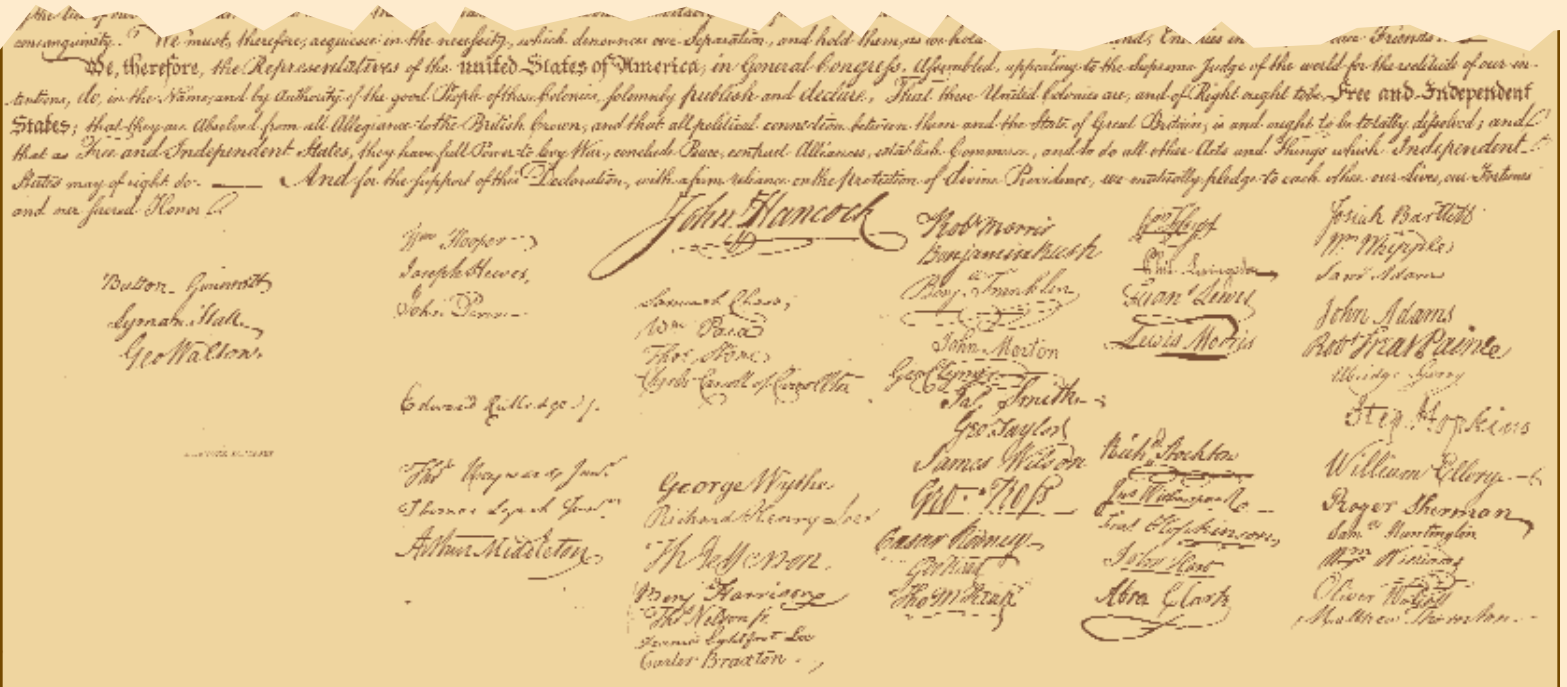 the ties of our
consanguinity. We must, therefore, acquiesce in the necessity, which denounces our Separation, and hold them, as we hold Enemies in Friends
We, therefore, the Representatives of the united States of America, in General Congress, Assembled, appealing to the Supreme Judge of the world for the rectitude of our in-
tentions, do, in the Name, and by Authority of the good People of these Colonies, solemnly publish and declare, That these United Colonies are, and of Right ought to be Free and Independent
States; that they are Absolved from all Allegiance to the British Crown, and that all political connection between them and the State of Great Britain, is and ought to be totally dissolved; and
that as Free and Independent States, they have full Power to levy War, conclude Peace, contract Alliances, establish Commerce, and to do all other Acts and Things which Independent
States may of right do. And for the support of this Declaration, with a firm reliance on the protection of divine Providence, we mutually pledge to each other our Lives, our Fortunes
and our sacred Honor.
Button Gwinnett
Lyman Hall
Geo Walton.
Wm Hooper
Joseph Hewes,
John Penn
Edward Rutledge
Thos Heyward Junr.
Thomas Lynch Junr.
Arthur Middleton
John Hancock
Samuel Chase
Wm Paca
Thos Stone
Charles Carroll of Carrollton
George Wythe
Richard Henry Lee
Th Jefferson
Benj Harrison
Thos Nelson jr.
Francis Lightfoot Lee
Carter Braxton
Robt Morris
Benjamin Rush
Benj. Franklin
John Morton
Geo Clymer
Jas. Smith
Geo. Taylor
James Wilson
Geo. Ross
Caesar Rodney
Geo Read
Tho M:Kean
Phil. Livingston
Frans Lewis
Lewis Morris
Richd Stockton
Jno Witherspoon
Fras Hopkinson
John Hart
Abra Clark
Josiah Bartlett
Wm Whipple
Saml Adams
John Adams
Robt Treat Paine
Elbridge Gerry
Step. Hopkins
William Ellery
Roger Sherman
Saml Huntington
Wm Williams
Oliver Wolcott
Matthew Thornton